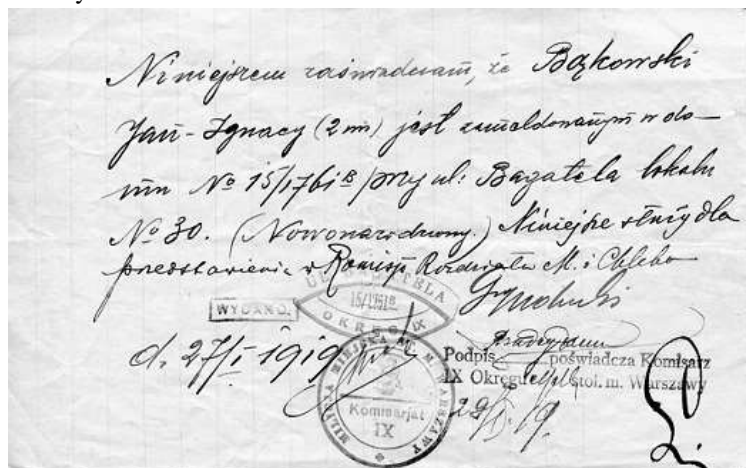 Niniejszem zaświadczam, że Bąkowski
Jan-Ignacy (2 im) jest zameldowanym w do-
mu № 15/1761B przy ul: Bagatela lokalu
№ 30. (Nowonarodzony.) Niniejsze służy dla
przedstawienia w Komisji Rozdziału M. i Chleba
UL. BAGATELA
15/1761B
OKRĘG IX
WYDANO.
d. 27/I 1919
Podpis poświadcza Komisarz
IX Okręgu stoł. m. Warszawy
MILICJA MIEJSKA M. WARSZAWY
Komisarjat
IX
29/I 19.